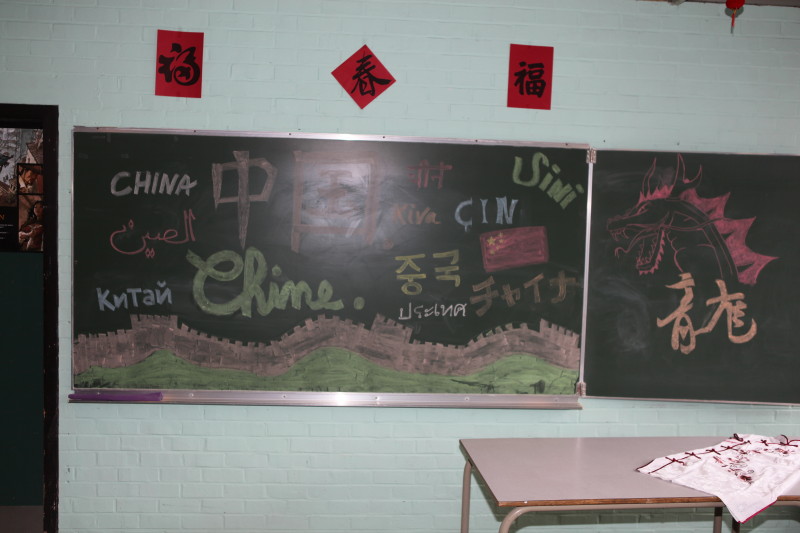 福 春 福
CHINA 中国 चीन Usini
الصين Kiva ÇIN
中국
Китай Chine. ประเทศ チャイナ
龍